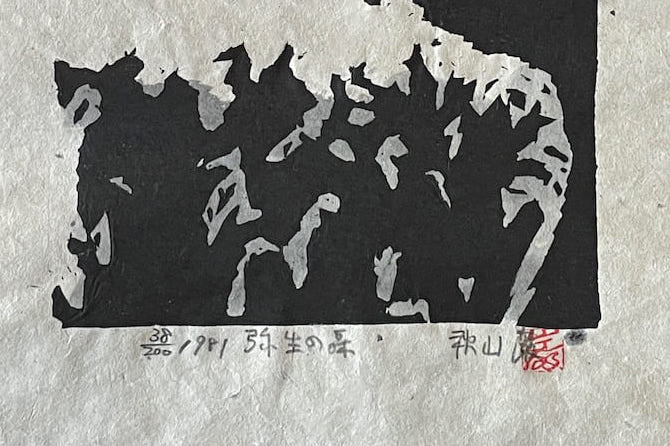 38/200 1981 弥生の 秋山